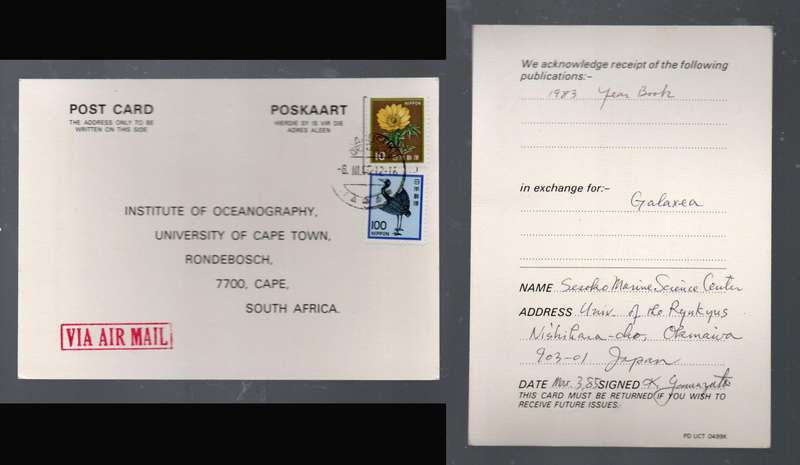 POST CARD
THE ADDRESS ONLY TO BE
WRITTEN ON THIS SIDE
POSKAART
HIERDIE SY IS VIR DIE
ADRES ALLEEN
NIPPON
10 日本郵便
日本郵便
100
NIPPON
-8. III. 12-18
INSTITUTE OF OCEANOGRAPHY,
UNIVERSITY OF CAPE TOWN,
RONDEBOSCH,
7700, CAPE,
SOUTH AFRICA.
VIA AIR MAIL
We acknowledge receipt of the following
publications:-
1983 Year Book
in exchange for:-
Galaxea
NAME Sesoko Marine Science Center
ADDRESS Univ. of the Ryukyus
Nishihara-cho, Okinawa
903-01 Japan
DATE Mar. 3, 85 SIGNED K. Yamazato
THIS CARD MUST BE RETURNED IF YOU WISH TO
RECEIVE FUTURE ISSUES.
PD UCT 0499K